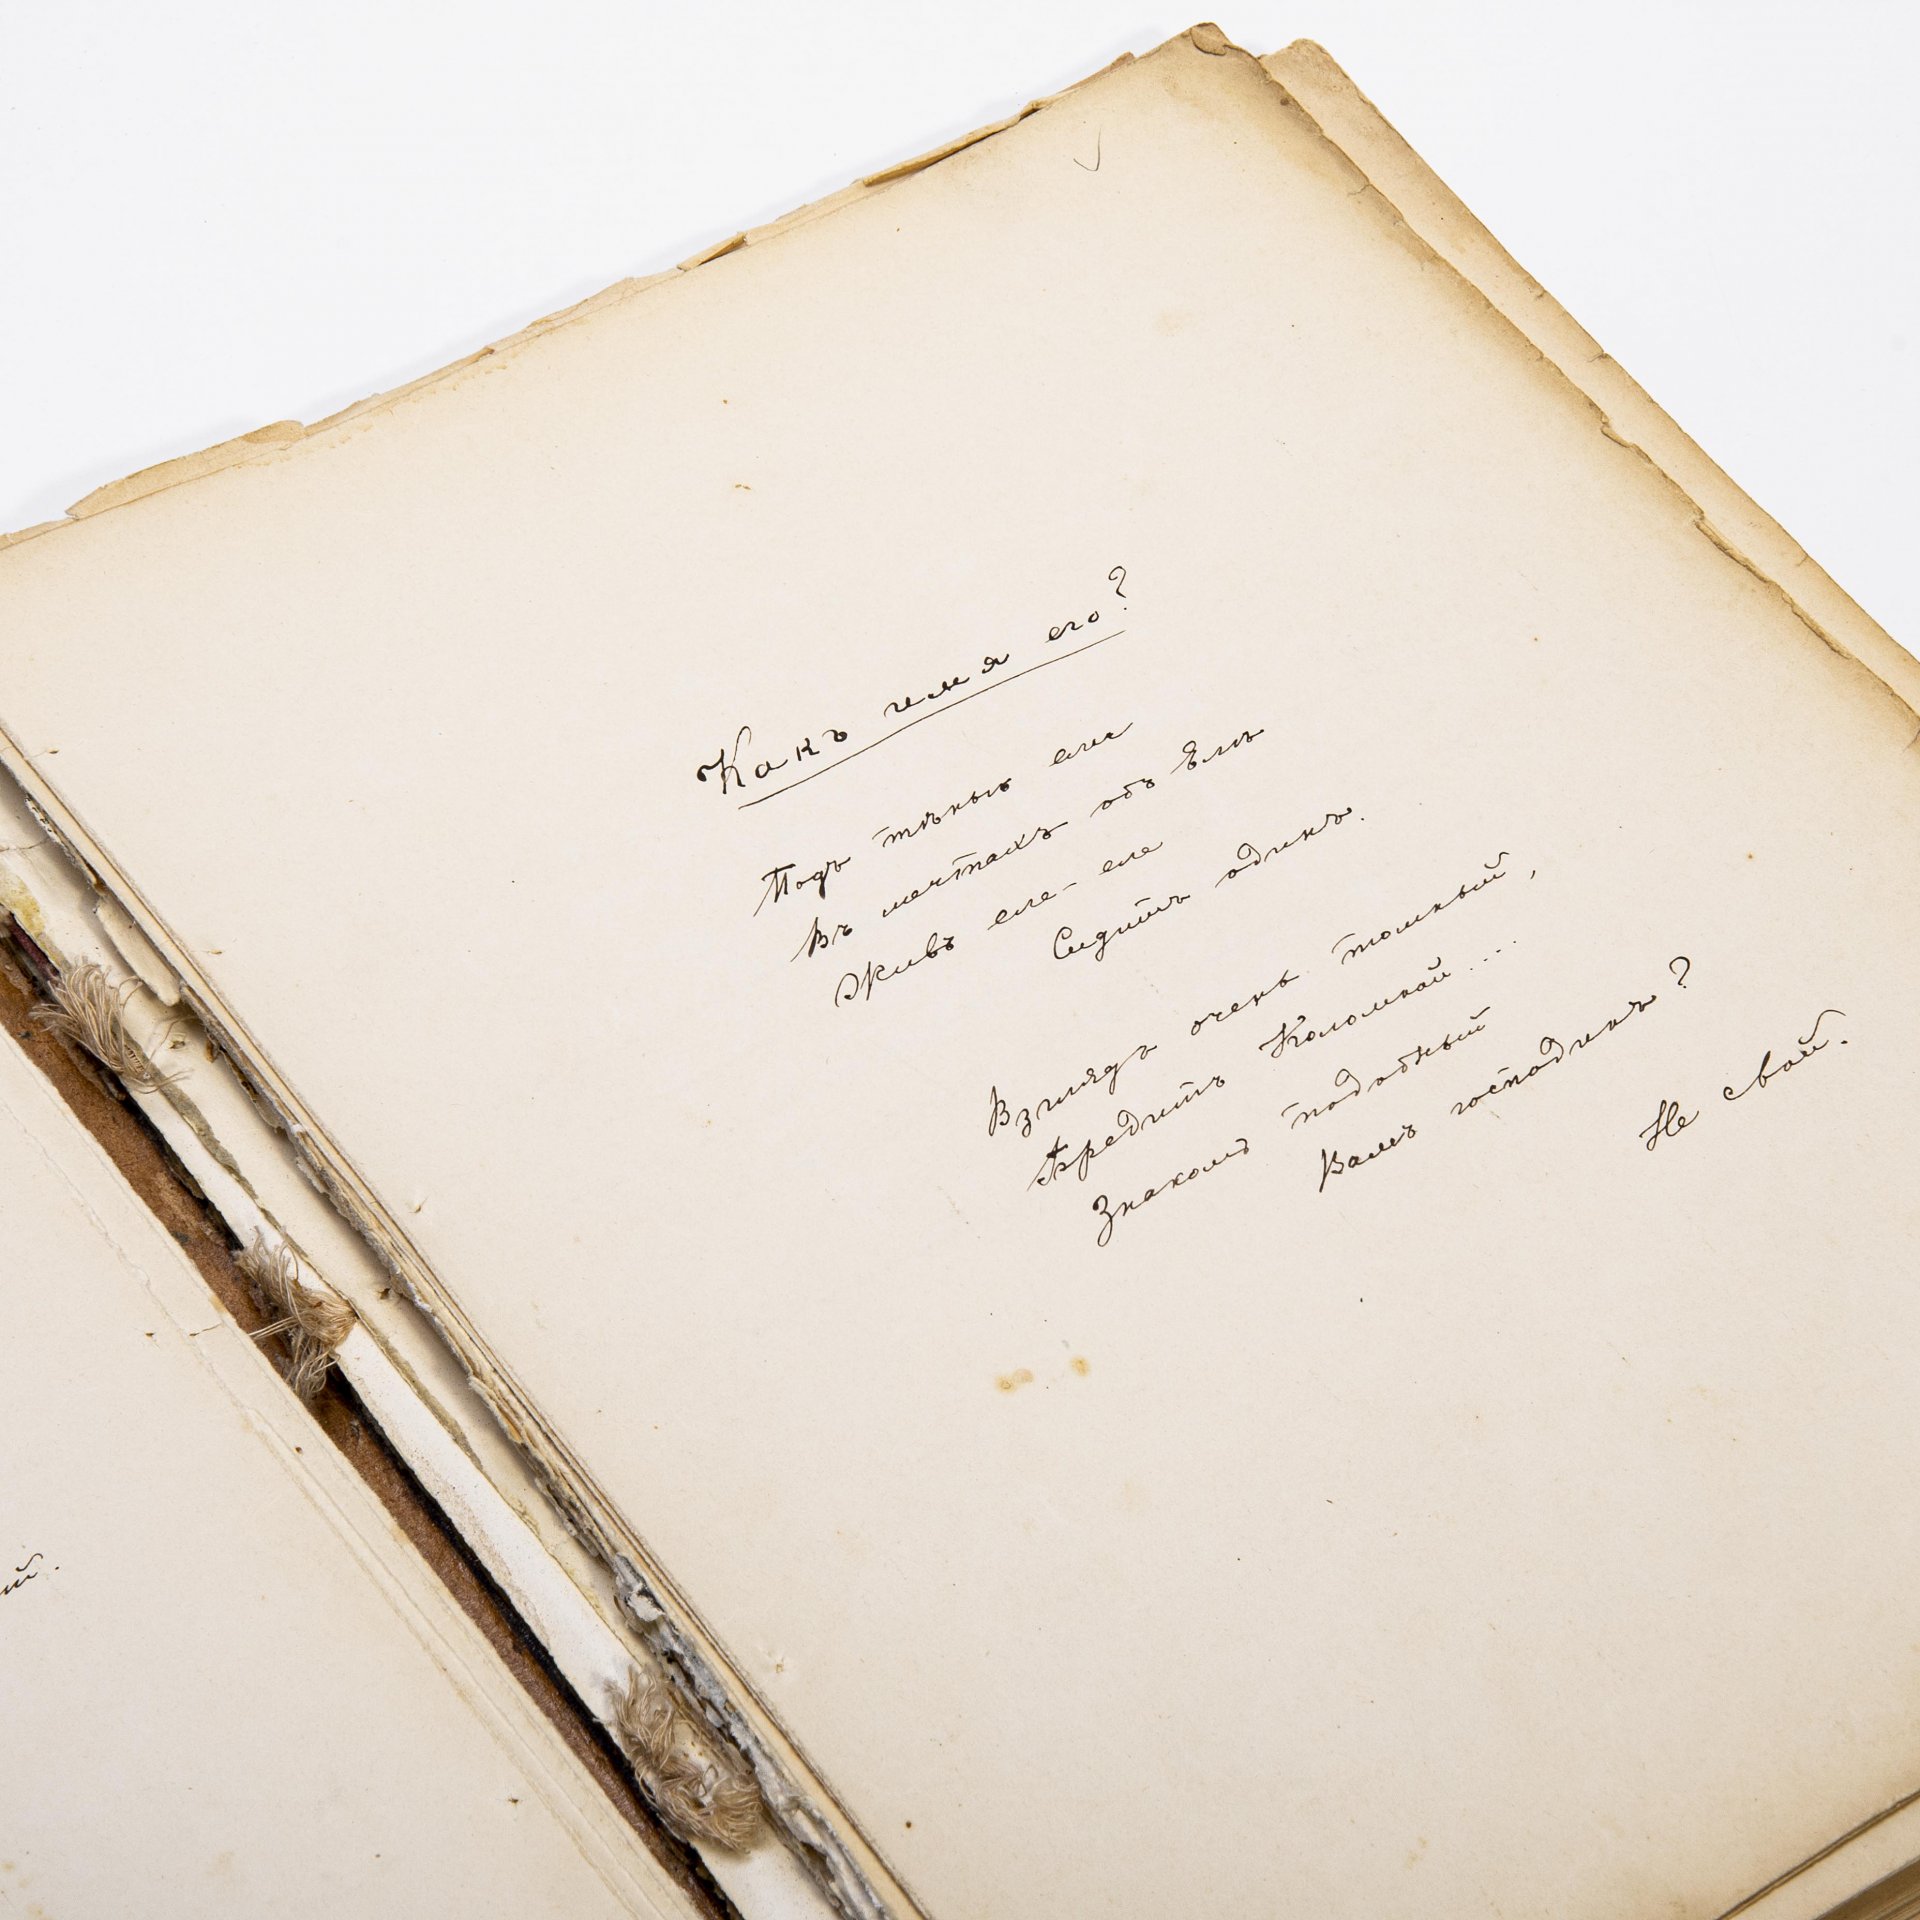 Какъ имя его?
Подъ тѣнью ели
Въ мечтахъ объ Елѣ
Живъ еле-еле
Сидитъ одинъ.
Взглядъ очень томный,
Бредитъ Коломной...
Знакомъ подобный
Вамъ господинъ?
Не свой.
ий.